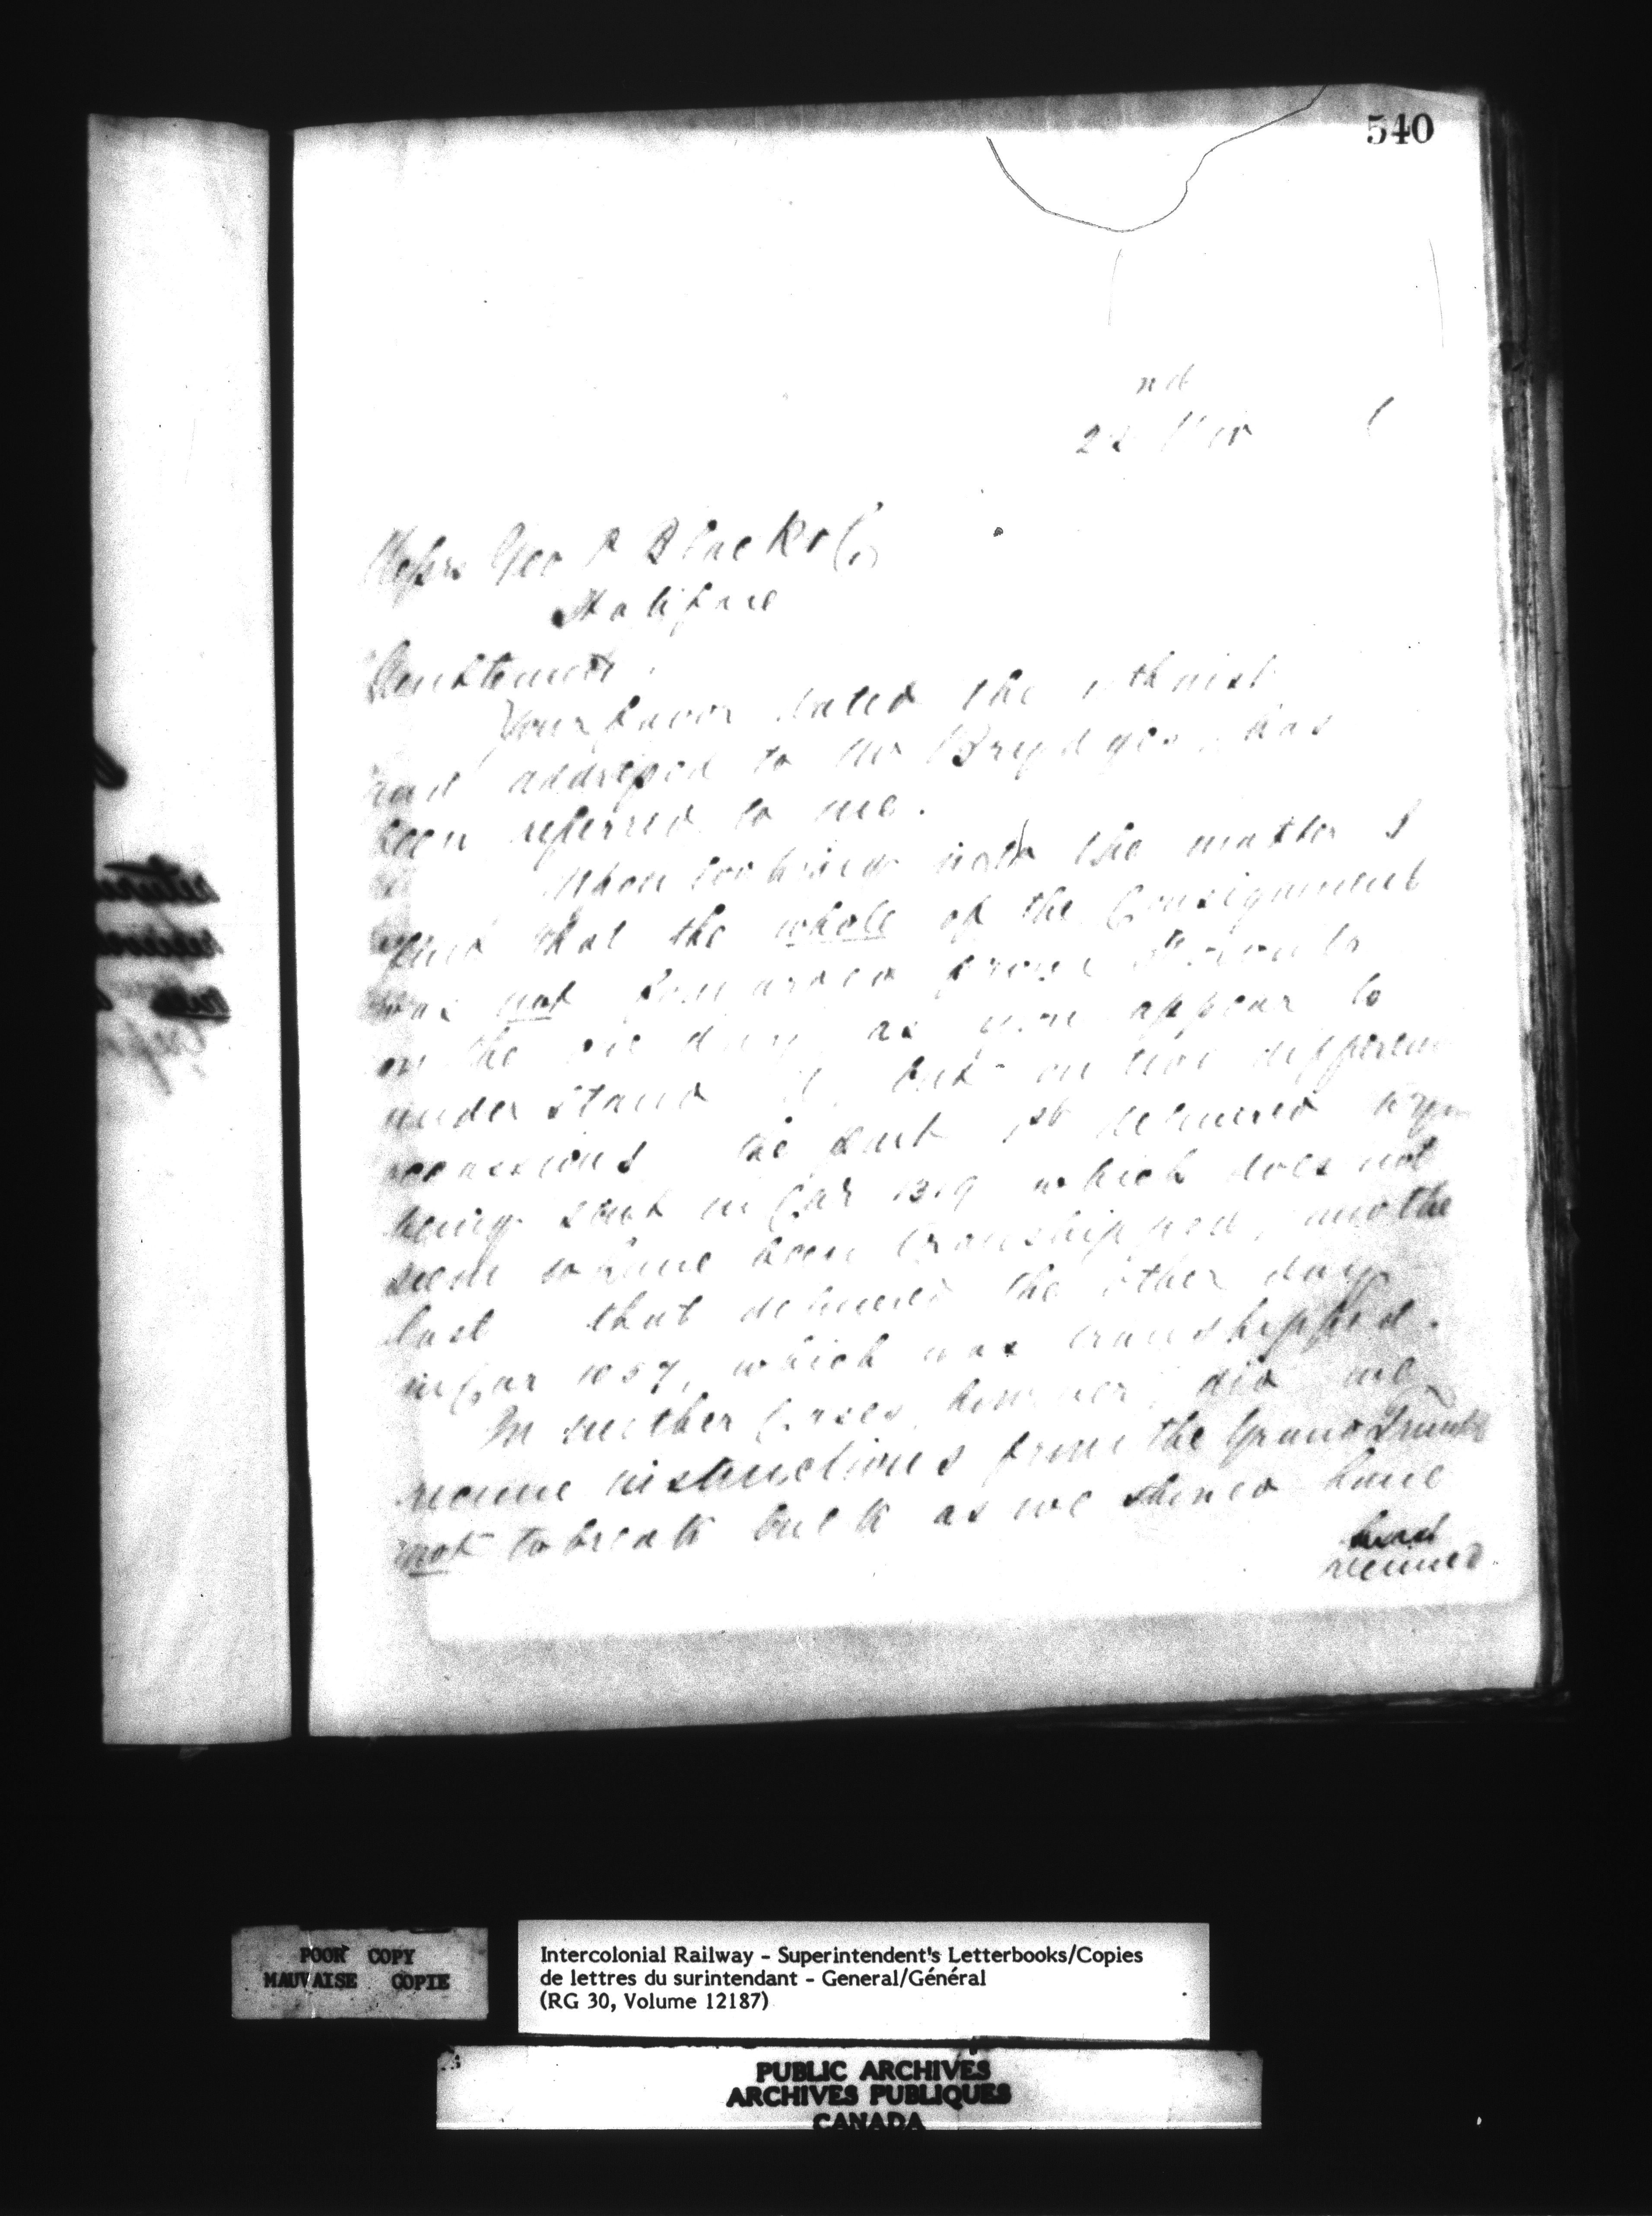 540
22nd
Messrs Geo P Black & Co
Halifax
Gentlemen
Your favor dated the inst
and addressed to Mr Brydges has
been referred to me.
When looking into the matter I
find that the whole of the Consignment
was not forwarded from Toronto
on the one day as you appear to
understand it, but on two different
occassions the first 1st delivered
being sent in Car 1319 which does not
seem to have been transhipped, and the
last that delivered the other day
in Car 1057, which was transhipped.
In neither Cases, however, did we
receive instructions from the Grand Trunk
not to break bulk as we should have
had
received
POOR COPY
MAUVAISE COPIE
Intercolonial Railway - Superintendent's Letterbooks/Copies
de lettres du surintendant - General/Général
(RG 30, Volume 12187)
PUBLIC ARCHIVES
ARCHIVES PUBLIQUES
CANADA